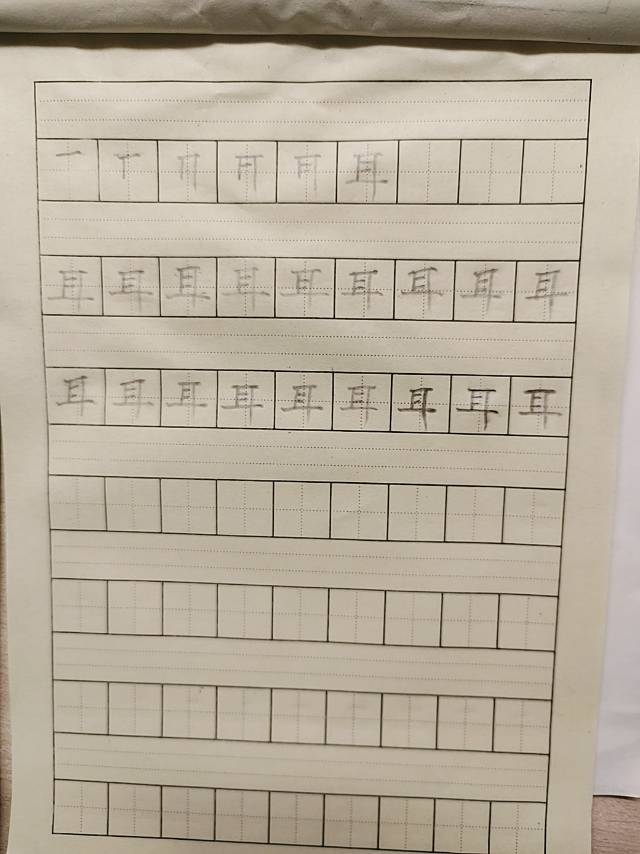 一 丅 耳
耳 耳 耳 耳 耳 耳 耳 耳 耳
耳 耳 耳 耳 耳 耳 耳 耳 耳